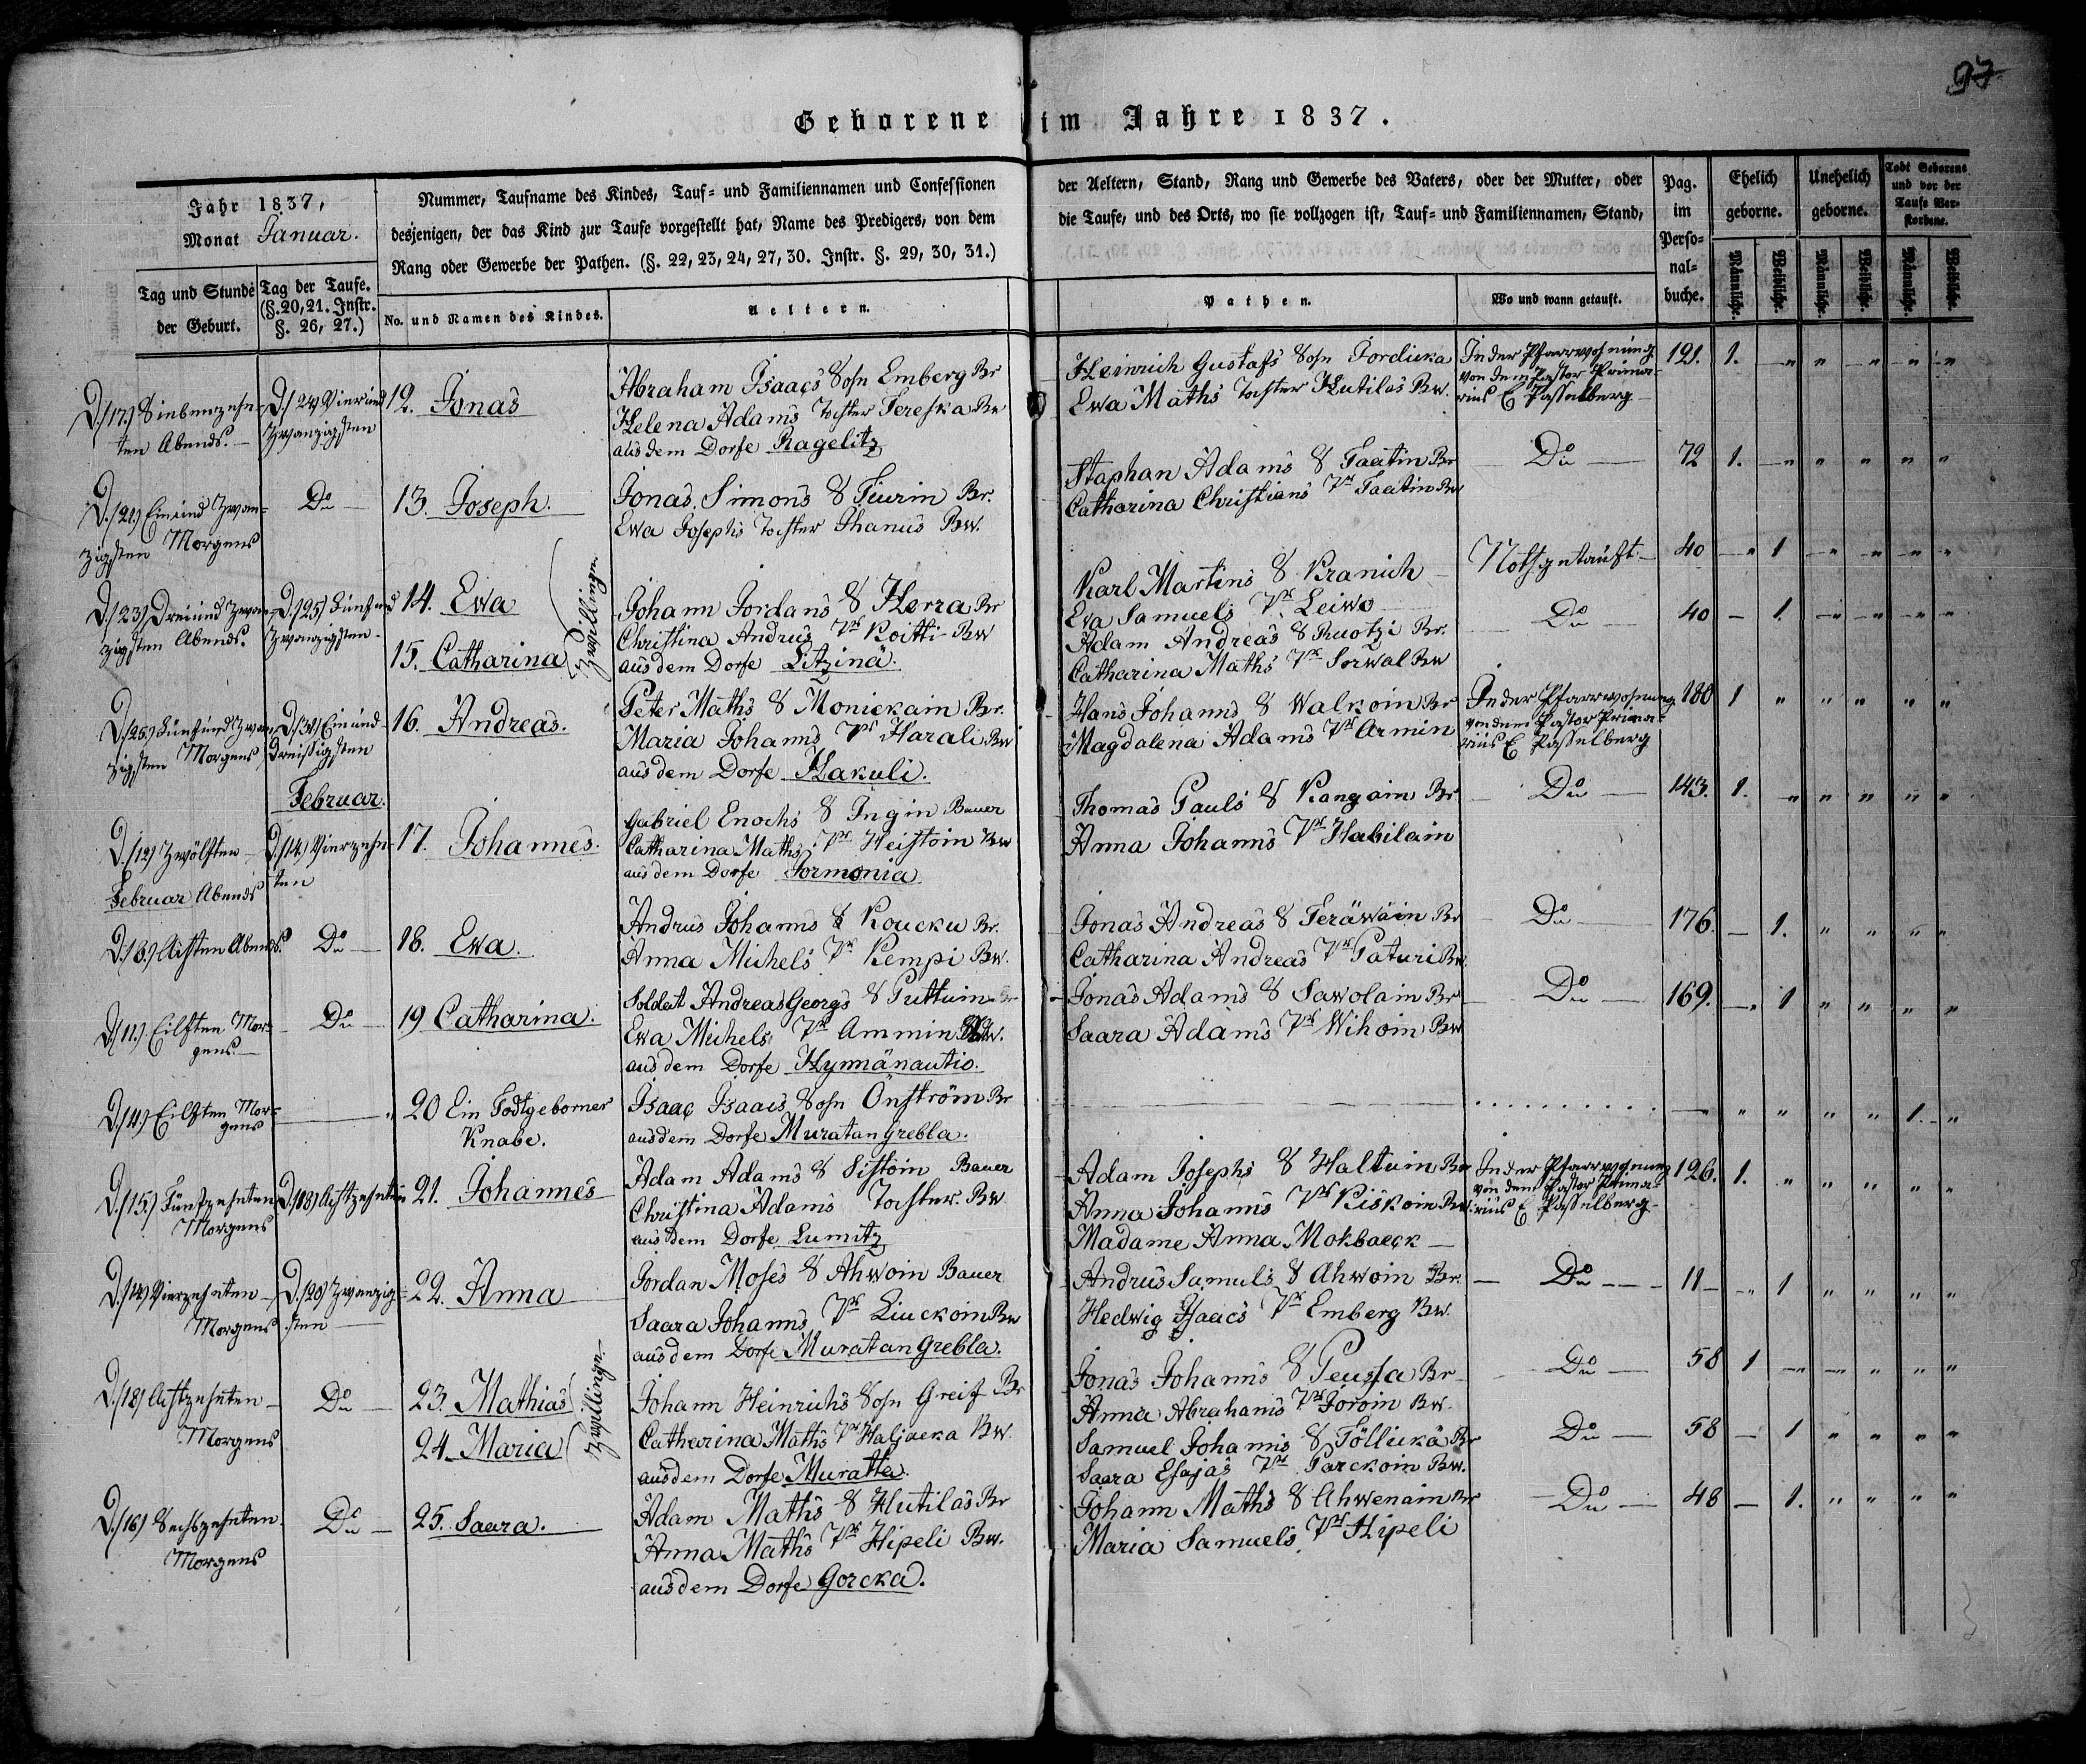 97
Geborene im Jahre 1837.
Jahr 1837,
Monat Januar.
Nummer, Taufname des Kindes, Tauf= und Familiennamen und Confessionen
der Aeltern, Stand, Rang und Gewerbe des Vaters, oder der Mutter, oder
desjenigen, der das Kind zur Taufe vorgestellt hat, Name des Predigers, von dem
die Taufe, und des Orts, wo sie vollzogen ist, Tauf= und Familiennamen, Stand,
Rang oder Gewerbe der Pathen. (§. 22, 23, 24, 27, 30. Instr. §. 29, 30, 31.)
Pag. im Perso=nal=buche.
Ehelich geborne.
Unehelich geborne.
Todt Geborene und vor der Taufe Ver=storbene.
Männliche. Weibliche. Männliche. Weibliche. Männliche. Weibliche.
Tag und Stunde der Geburt.
Tag der Taufe. (§. 20, 21. Instr. §. 26, 27.)
No. und Namen des Kindes.
Aeltern.
Pathen.
Wo und wann getauft.
D. (17.) Siebenzehn=
ten Abends.
D. (24) Vier und
Zwanzigsten
12. Jonas
Abraham Isaacs Sohn Emberg Br
Helena Adams Tochter Tereska Bw
aus dem Dorfe Ragelitz
Heinrich Gustafs Sohn Jordicka
Ewa Maths Tochter Hutilas Bw.
In der Pfarrwohnung
von dem Pastor Prima=
rius E Passelberg
121. 1. " " " " "
D. (21.) Ein und Zwan=
zigsten Morgens
Do
13. Joseph.
Jonas Simons S Tiurin Br.
Ewa Josephs Tochter Ihanus Bw.
Staphan Adams S Taatin Br
Catharina Christians Tr Taatin Bw
Do
72 1. " " " " "
D. (23) Drei und Zwan=
zigsten Abends.
D. (25) Fünf und
Zwanzigsten
14. Ewa
15. Catharina
Zwillinge
Johann Jordans S Herra Br
Christina Andrus Tr Koitti Bw
aus dem Dorfe Litzinä.
Karl Martins S Kranich
Eva Samuels Tr Leiwo
Nothgetauft
40 " 1 " " " "
Adam Andreas S Ruotzi Br.
Catharina Maths Tr Sorwal Bw
Do
40 - 1. " " " "
D. (25.) Fünf und Zwan=
zigsten Morgens
D. (31) Ein und
dreissigsten
16. Andreas.
Peter Maths S Monickain Br.
Maria Johanns Tr Harali Bw
aus dem Dorfe Hakuli.
Hans Johanns S Walkoin Br
Magdalena Adams Tr Armin
In der Pfarrwohnung
von dem Pastor Prima=
rius E Passelberg
180 1 " " " " "
Februar.
D. (12) Zwölften
Februar Abends
D. (14) Vierzehn=
ten
17. Johannes.
Gabriel Enochs S Ingin Bauer
Catharina Maths Tr Heistoin Bw
aus dem Dorfe Jormonia
Thomas Pauls S Kangain Br.
Anna Johanns Tr Habilain
Do
143. 1. " " " " "
D. (8.) Achten Abends.
Do
18. Ewa.
Andrus Johanns S Koucku Br.
Anna Michels Tr Kempi Bw.
Jonas Andreas S Teräwäin Br
Catharina Andreas Tr Paturi Bw.
Do
176. - 1. " " " "
D. (11.) Eilften Mor=
gens.
Do
19 Catharina.
Soldat Andreas Georgs S Puttuin
Ewa Michels Tr Ammin
aus dem Dorfe Hynnänautio.
Jonas Adams S Sawolain Br
Saara Adams Tr Wihoin Bw
Do
169. " 1 " " " "
Eilften Mor=
gens
20 Ein Todtgeborner
Knabe.
Isaac Isaacs Sohn Önström Br
aus dem Dorfe Muratan Grebla.
" " " " " 1. "
D. (15.) Fünfzehnten
Morgens
D. (18) Achtzehnten
21. Johannes
Adam Adams S Sistoin Bauer
Christina Adams Tochter. Bw
aus dem Dorfe Lumitz
Adam Josephs S Haltuin Br
Anna Johanns Tr Kiskoin Bw
Madame Anna Mokbaeck
In der Pfarrwohnung
von dem Pastor Prima=
rius E Passelberg
126. 1. " " " " "
D. (14) Vierzehnten
Morgens
D. (20) Zwanzig=
sten
22. Anna
Jordan Moses S Ahwoin Bauer
Saara Johanns Tr Liuckoin Bw
aus dem Dorfe Muratan Grebla.
Andrus Samuls S Ahwoin Br.
Hedwig Isaacs Tr Emberg Bw.
Do
11 " 1 " " " "
D. (18) Achtzehnten
Morgens
Do
23. Mathias
24. Maria
Zwillinge
Johann Heinrichs Sohn Greif Br
Catharina Maths Tr Haljacka Bw.
aus dem Dorfe Muratta.
Jonas Johanns S Peussa Br
Anna Abrahams Tr Joroin Bw.
Do
58 1 " " " " "
Samuel Johanns S Töllickä Br
Saara Esajas Tr Parckoin Bw.
Do
58 - 1 " " " "
D. (16) Sechszehnten
Morgens
Do
25. Saara.
Adam Maths S Hutilas Br
Anna Maths Tr Hipeli Bw.
aus dem Dorfe Gorcka.
Johann Maths S Ahwenain Br
Maria Samuels Tr Hipeli
Do
48 - 1. " " " "